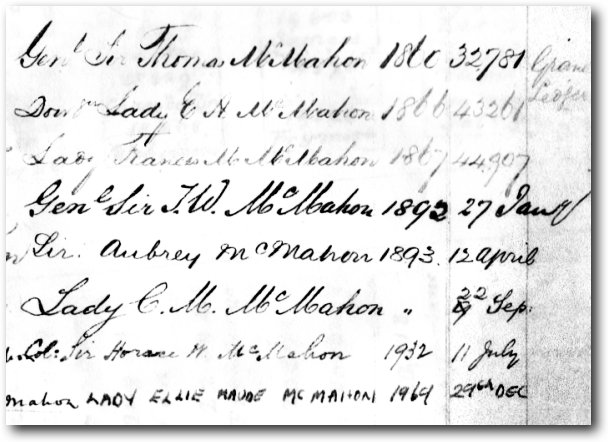 Genl Sir Thomas McMahon 1860 32781 Grave
Dowr Lady E A McMahon 1866 43261 Ledger
Lady Frances M McMahon 1867 44907
Genl Sir T.W. McMahon 1892 27 Jany
Sir. Aubrey McMahon 1893. 12 April
Lady C. M. McMahon " 22 Sep.
Col: Sir Horace W. McMahon 1932 11 July
Mahon LADY ELLIE MAUDE MCMAHON 1969 29th DEC